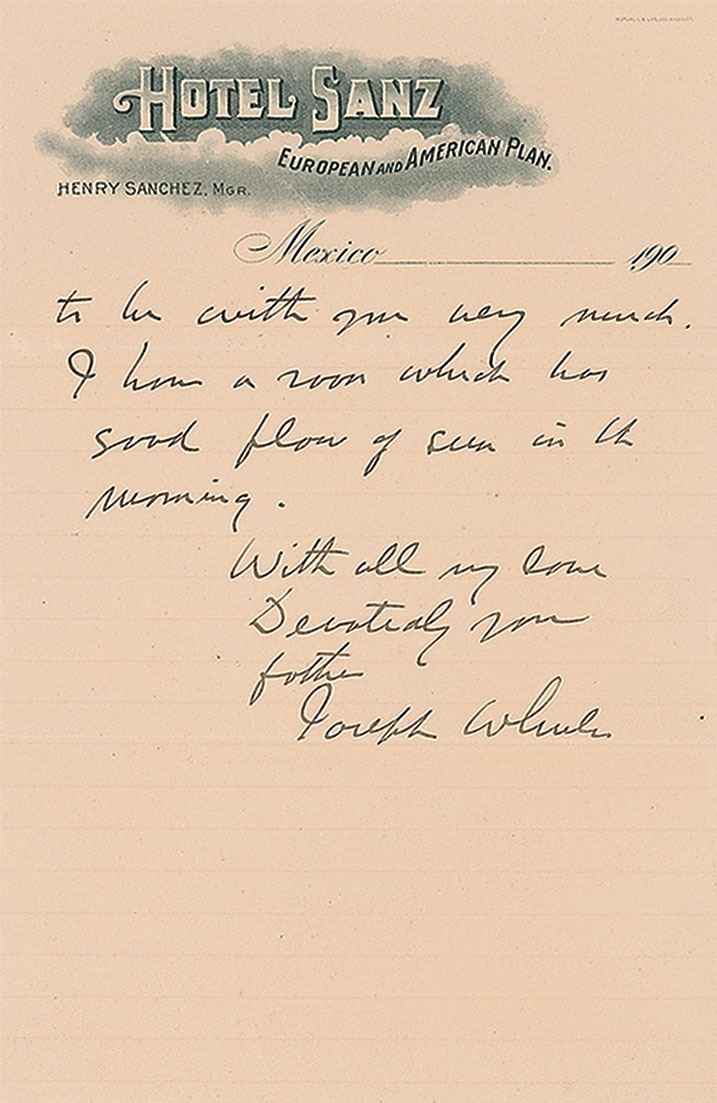 HOTEL SANZ
EUROPEAN AND AMERICAN PLAN.
HENRY SANCHEZ, MGR.
Mexico 190
to be with you very much.
I have a room which has
good flow of sun in the
morning.
With all my love
Devotedly your
father
Joseph Wheeler